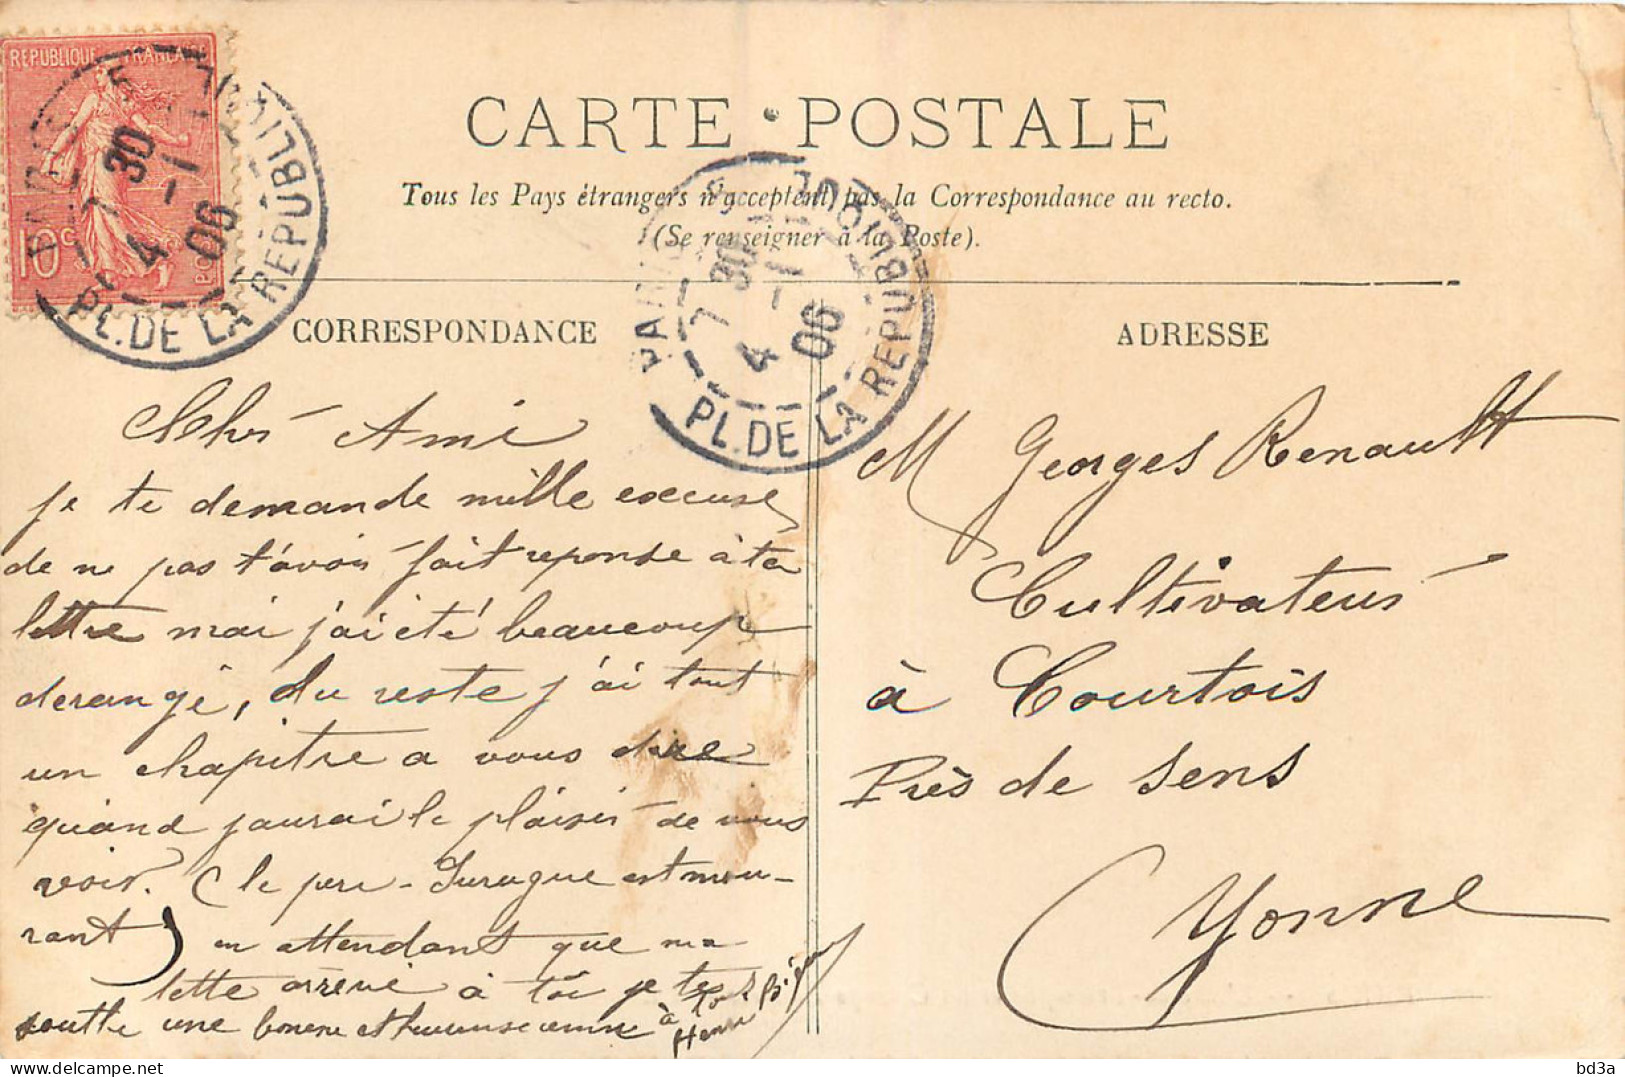 REPUBLIQUE FRANCAISE
10c
PARIS
7 30
4 - 1
06
PL. DE LA REPUBLIQUE
CARTE POSTALE
Tous les Pays étrangers n'acceptent pas la Correspondance au recto.
(Se renseigner à la Poste).
PARIS
7 30
4 - 1
06
PL. DE LA REPUBLIQUE
CORRESPONDANCE
Cher Ami
je te demande mille excuse
de ne pas t'avoir fait reponse à ta
lettre mai j'ai été beaucoup
derangé, du reste j'ai tout
un chapitre a vous dire
quand j'aurai le plaisir de vous
voir. (le pere - Jurugue est mou-
rant) en attendant que ma
lettre arrive à toi je te
soutte une bonne et heureuse anne à toi
Henri
ADRESSE
M Georges Renault
Cultivateur
à Courtois
Près de Sens
Yonne
bd3a